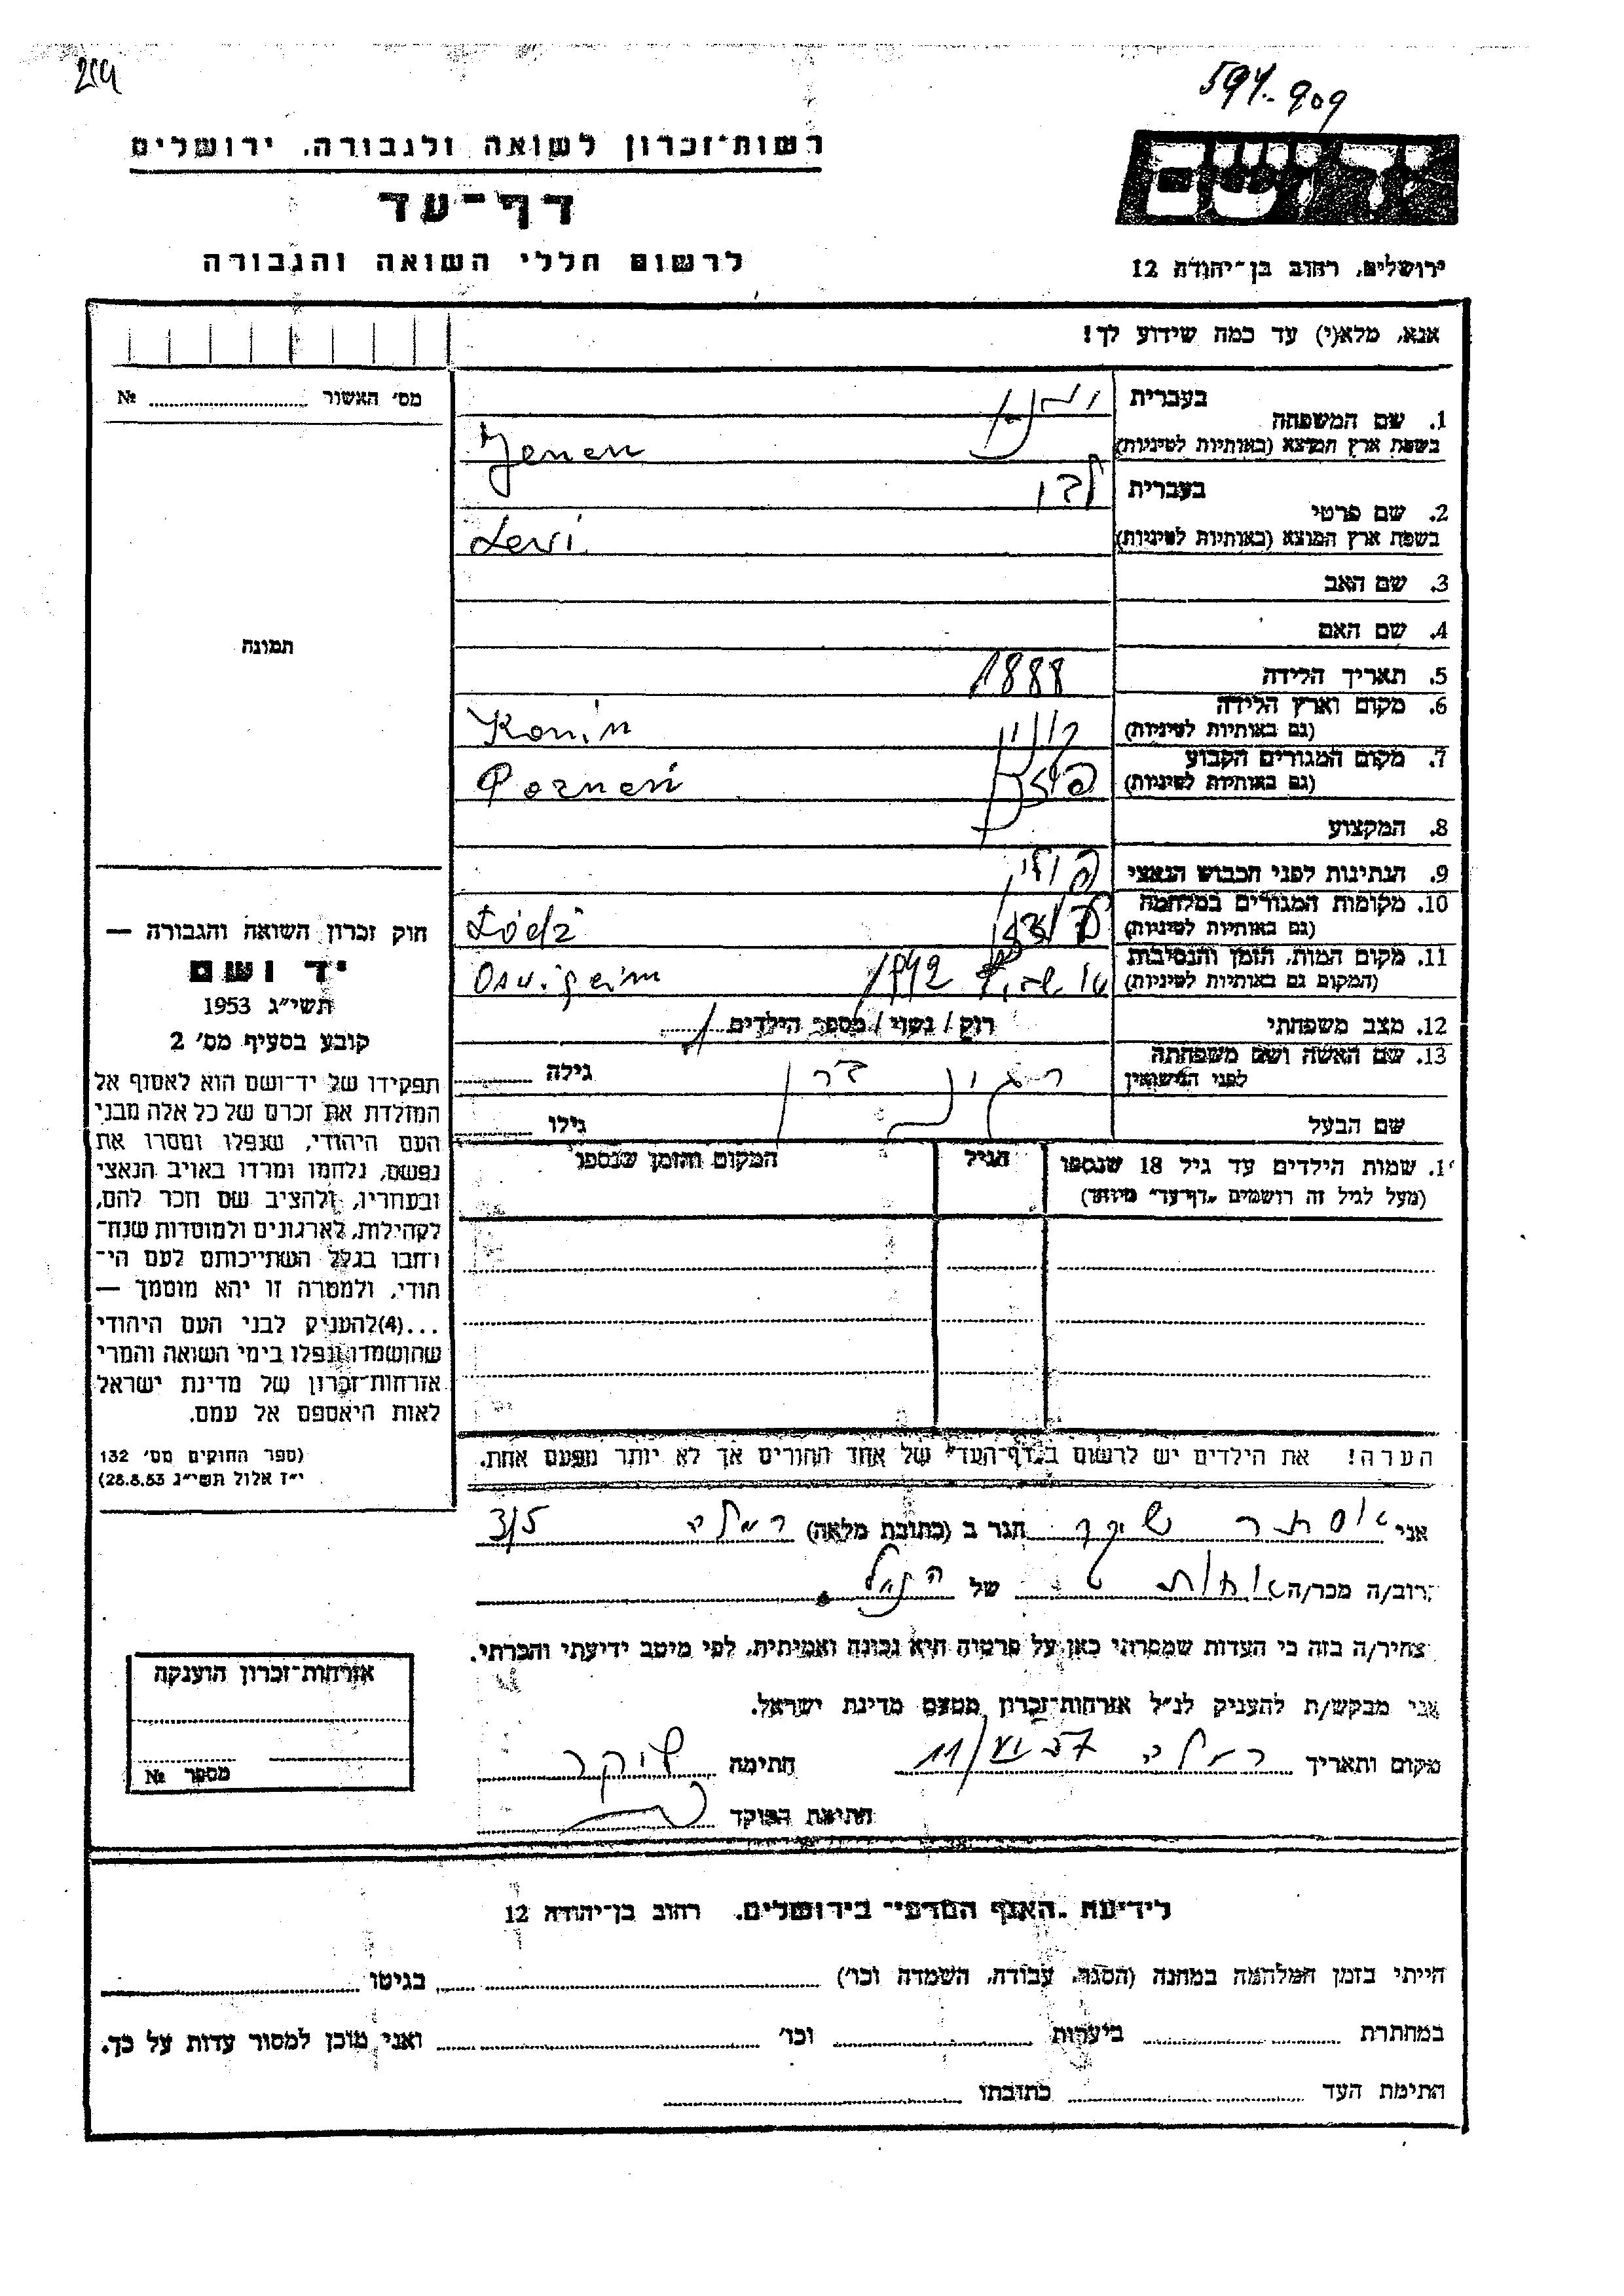 219
594-909
רשות־זכרון לשואה ולגבורה, ירושלים
יד ושם
דף־עד
לרשום חללי השואה והגבורה
ירושלים, רחוב בן־יהודה 12
אנא, מלא(י) עד כמה שידוע לך!
מס' האשור № 
1. שם המשפחה
בעברית
בשפת ארץ המוצא (באותיות לטיניות)
2. שם פרטי
בעברית
בשפת ארץ המוצא (באותיות לטיניות) Levi
3. שם האב
4. שם האם
5. תאריך הלידה 1888
6. מקום וארץ הלידה
(גם באותיות לטיניות) קונין Konin
7. מקום המגורים הקבוע
(גם באותיות לטיניות) פוזנן Poznań
8. המקצוע
9. הנתינות לפני הכבוש הנאצי פולני
10. מקומות המגורים במלחמה
(גם באותיות לטיניות) לודז' Łódź
11. מקום המות, הזמן והנסיבות
(המקום גם באותיות לטיניות) 1942
12. מצב משפחתי רוק / נשוי / מספר הילדים 1
13. שם האשה ושם משפחתה
לפני הנישואין
גילה
שם הבעל
גילו
שמות הילדים עד גיל 18 שנספו
(מעל לגיל זה רושמים "דף־עד" מיוחד)
הגיל
המקום והזמן שנספו
תמונה
חוק זכרון השואה והגבורה —
יד ושם
תשי"ג 1953
קובע בסעיף מס' 2
תפקידו של יד־ושם הוא לאסוף אל
המולדת את זכרם של כל אלה מבני
העם היהודי, שנפלו ומסרו את
נפשם, נלחמו ומרדו באויב הנאצי
ובעוזריו, ולהציב שם וזכר להם,
לקהילות, לארגונים ולמוסדות שנח־
רבו בגלל השתייכותם לעם הי־
הודי, ולמטרה זו יהא מוסמך —
...(4)להעניק לבני העם היהודי
שהושמדו ונפלו בימי השואה והמרי
אזרחות־זכרון של מדינת ישראל
לאות היאספם אל עמם.
(ספר החוקים מס' 132
י"ז אלול תשי"ג 28.8.53)
הערה! את הילדים יש לרשום ב"דף־העד" של אחד ההורים אך לא יותר מפעם אחת.
אני אסתר שיקר הגר ב (כתובת מלאה) רמלה 3/5
קרוב/ה מכר/ה אחות של הנ"ל
מצהיר/ה בזה כי העדות שמסרתי כאן על פרטיה היא נכונה ואמיתית, לפי מיטב ידיעתי והכרתי.
אני מבקש/ת להעניק לנ"ל אזרחות־זכרון מטעם מדינת ישראל.
מקום ותאריך רמלה 11/VI 57 חתימה שיקר
חתימת הפוקד
אזרחות־זכרון הוענקה
מספר №
לידיעת "האגף המדעי" בירושלים, רחוב בן־יהודה 12
הייתי בזמן המלחמה במחנה (הסגר, עבודה, השמדה וכו') בגיטו
במחתרת ביערות וכו' ואני מוכן למסור עדות על כך.
חתימת העד כתובתו